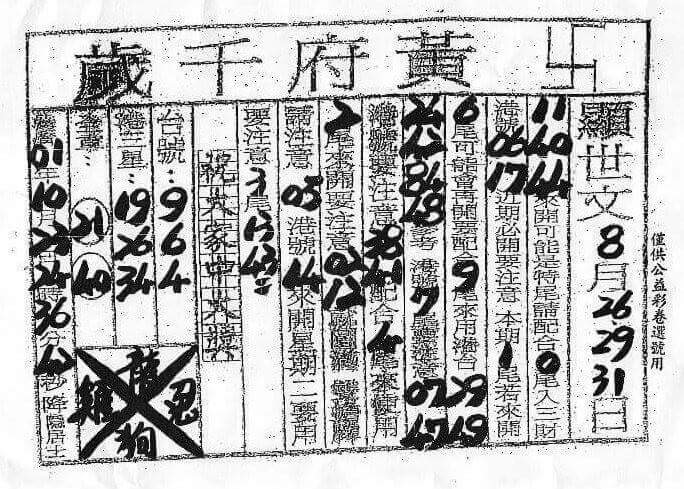 卐黃府千歲
僅供公益彩卷選號用
顯世文 8月26.29.31日
11 40 44 來開可能是特尾請配合0尾入三財
港號 06 17 近期必開要注意 本期1尾若來開
6尾可能會再開要配合9尾來用港台 29 49
42 48 參考 港號 7 注意 07 47
港號要注意 38 配合4尾來使用
2尾來開要注意 02 12
請注意 05 港號 44 來開星期二要用
要注意 3尾 13 43
祝大家中大獎
台號: 9 6 4
港三星: 19 26 34
21 40
01年10月23日24時36分秒降隱居士
龍
雞 忍
狗